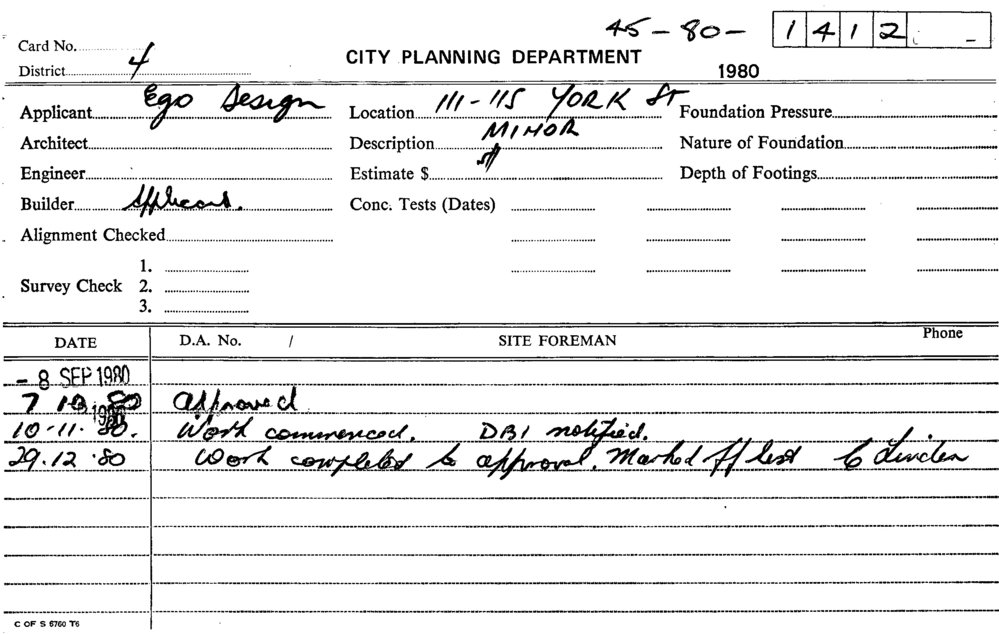 45-80- 1412
Card No. 4
CITY PLANNING DEPARTMENT
District
1980
Applicant Ego Design Location 111-115 YORK ST Foundation Pressure
Architect Description MINOR Nature of Foundation
Engineer Estimate $ Depth of Footings
Builder Applicant. Conc. Tests (Dates)
Alignment Checked
1.
Survey Check 2.
3.
DATE D.A. No. / SITE FOREMAN Phone
- 8 SEP 1980
7 10 80 Approved
10-11-80. Work commenced. DBI notified.
29.12.80 Work completed to approval. Marked off list
C OF S 6760 T6